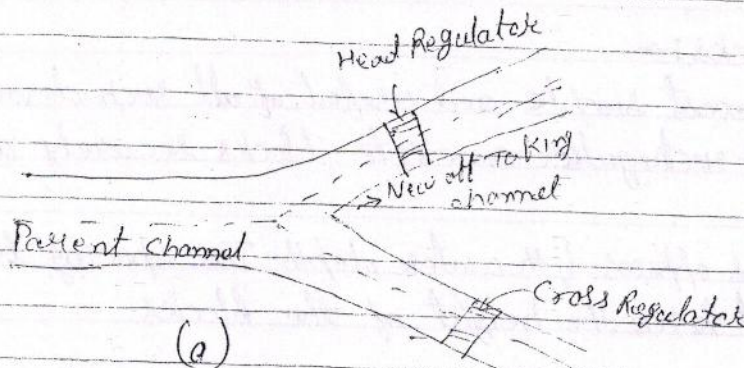 Head Regulator
New off Taking
channel
Parent channel
Cross Regulator
(a)